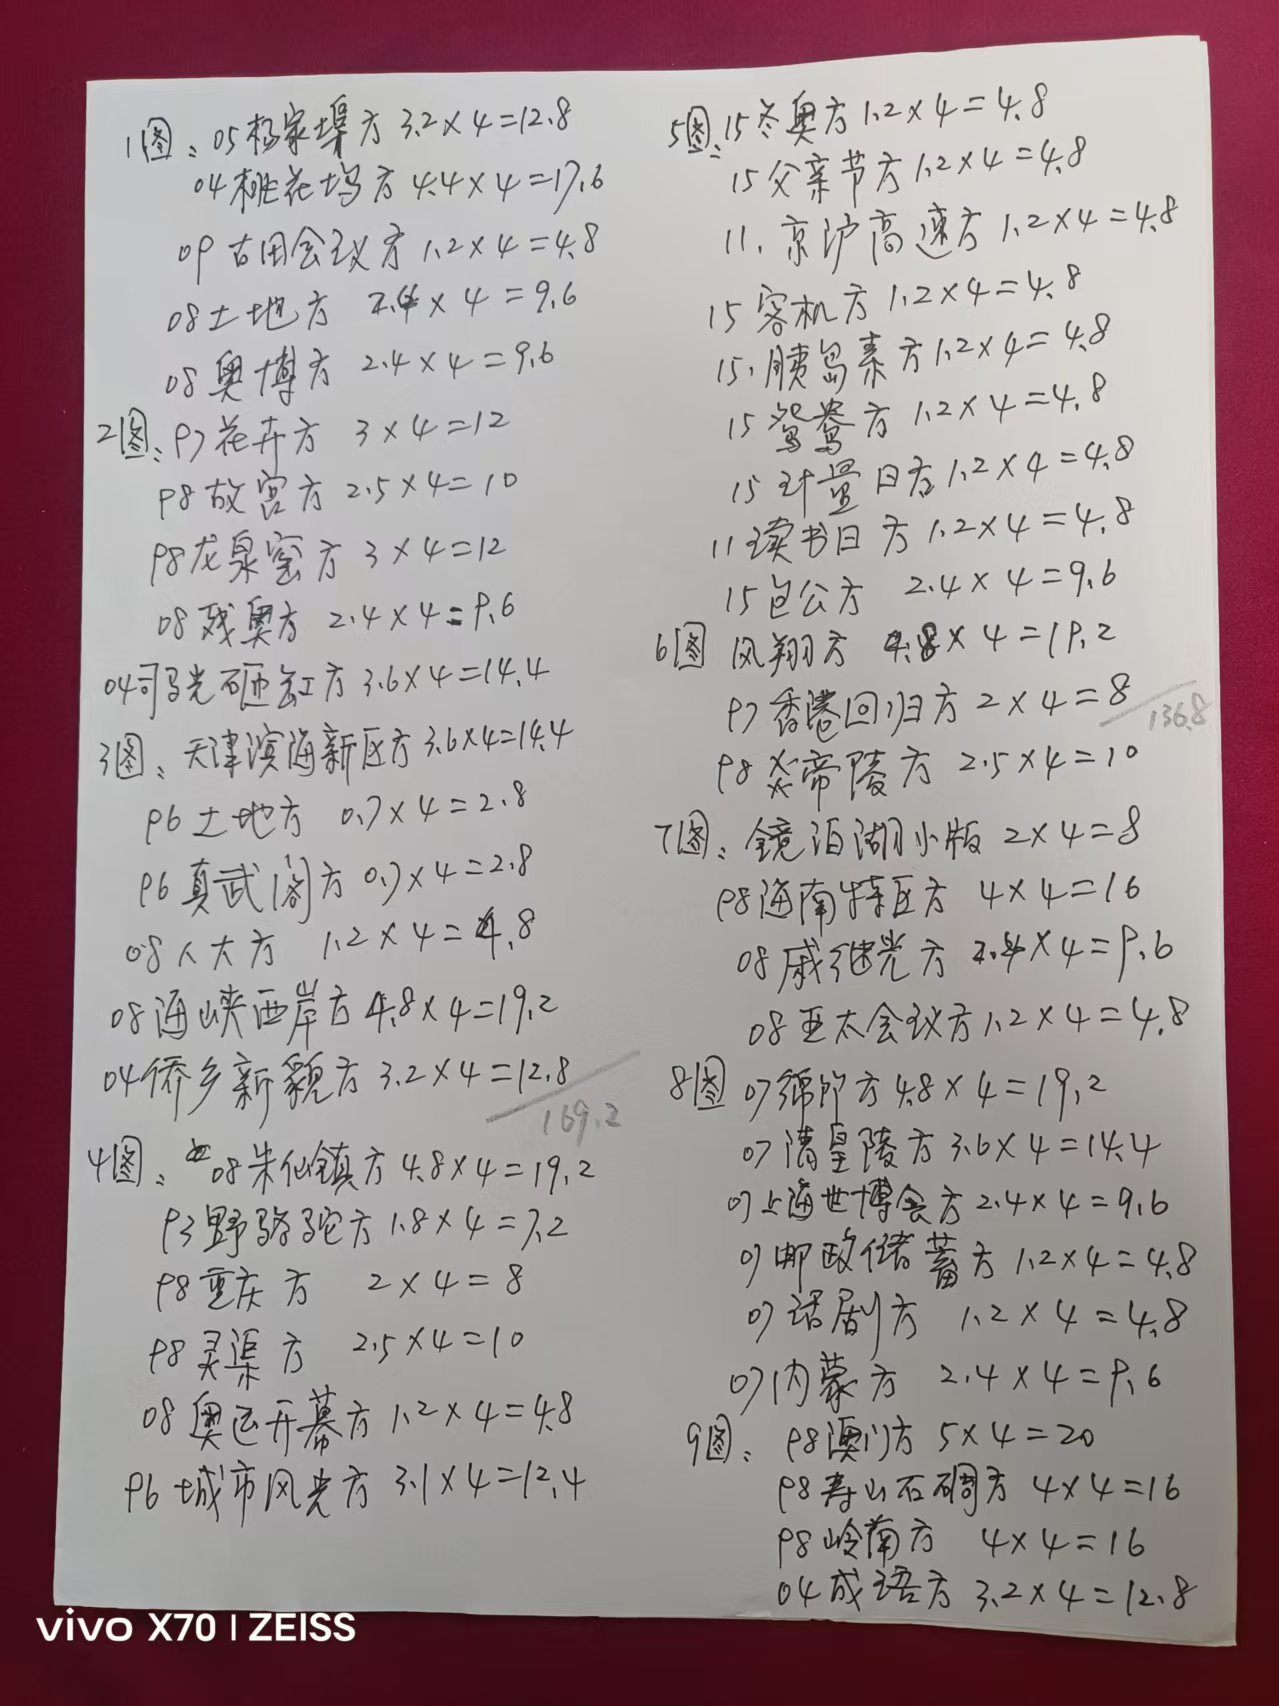 1图: 05杨家埠方 3.2×4=12.8
04桃花坞方 4.4×4=17.6
09古田会议方 1.2×4=4.8
08土地方 2.4×4=9.6
08奥博方 2.4×4=9.6
2图: 97花卉方 3×4=12
98故宫方 2.5×4=10
98龙泉窑方 3×4=12
08残奥方 2.4×4=9.6
04司马光砸缸方 3.6×4=14.4
3图: 天津滨海新区方 3.6×4=14.4
96土地方 0.7×4=2.8
96真武阁方 0.7×4=2.8
08人大方 1.2×4=4.8
08海峡西岸方 4.8×4=19.2
04侨乡新貌方 3.2×4=12.8
169.2
4图: 08朱仙镇方 4.8×4=19.2
93野骆驼方 1.8×4=7.2
98重庆方 2×4=8
98灵渠方 2.5×4=10
08奥运开幕方 1.2×4=4.8
96城市风光方 3.1×4=12.4
5图: 15冬奥方 1.2×4=4.8
15父亲节方 1.2×4=4.8
11.京沪高速方 1.2×4=4.8
15客机方 1.2×4=4.8
15.胰岛素方 1.2×4=4.8
15鸳鸯方 1.2×4=4.8
15计量日方 1.2×4=4.8
11读书日方 1.2×4=4.8
15包公方 2.4×4=9.6
6图 凤翔方 4.8×4=19.2
97香港回归方 2×4=8
136.8
98炎帝陵方 2.5×4=10
7图: 镜泊湖小版 2×4=8
98海南特区方 4×4=16
08戚继光方 2.4×4=9.6
08亚太会议方 1.2×4=4.8
8图 07绵竹方 4.8×4=19.2
07清皇陵方 3.6×4=14.4
07上海世博会方 2.4×4=9.6
07邮政储蓄方 1.2×4=4.8
07话剧方 1.2×4=4.8
07内蒙方 2.4×4=9.6
9图: 98澳门方 5×4=20
98寿山石碉方 4×4=16
98岭南方 4×4=16
04成语方 3.2×4=12.8
vivo X70 | ZEISS